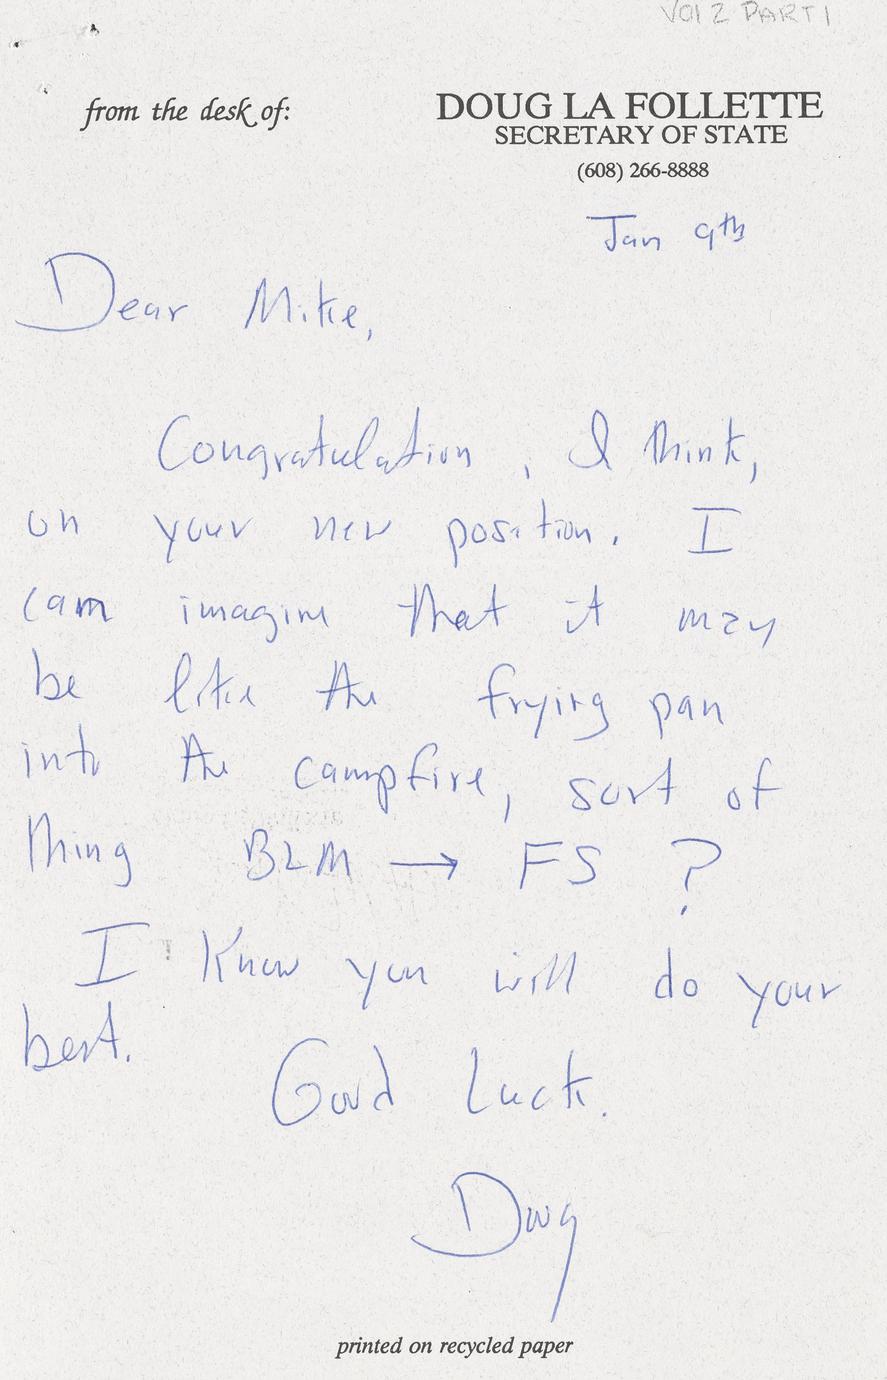 VOl 2 PART 1
from the desk of:
DOUG LA FOLLETTE
SECRETARY OF STATE
(608) 266-8888
Jan 9th
Dear Mike,
Congratulation, I think,
on your new position. I
cam imagine that it may
be like the frying pan
into the campfire, sort of
thing BLM → FS ?
I know you will do your
best.
Good Luck.
Doug
printed on recycled paper